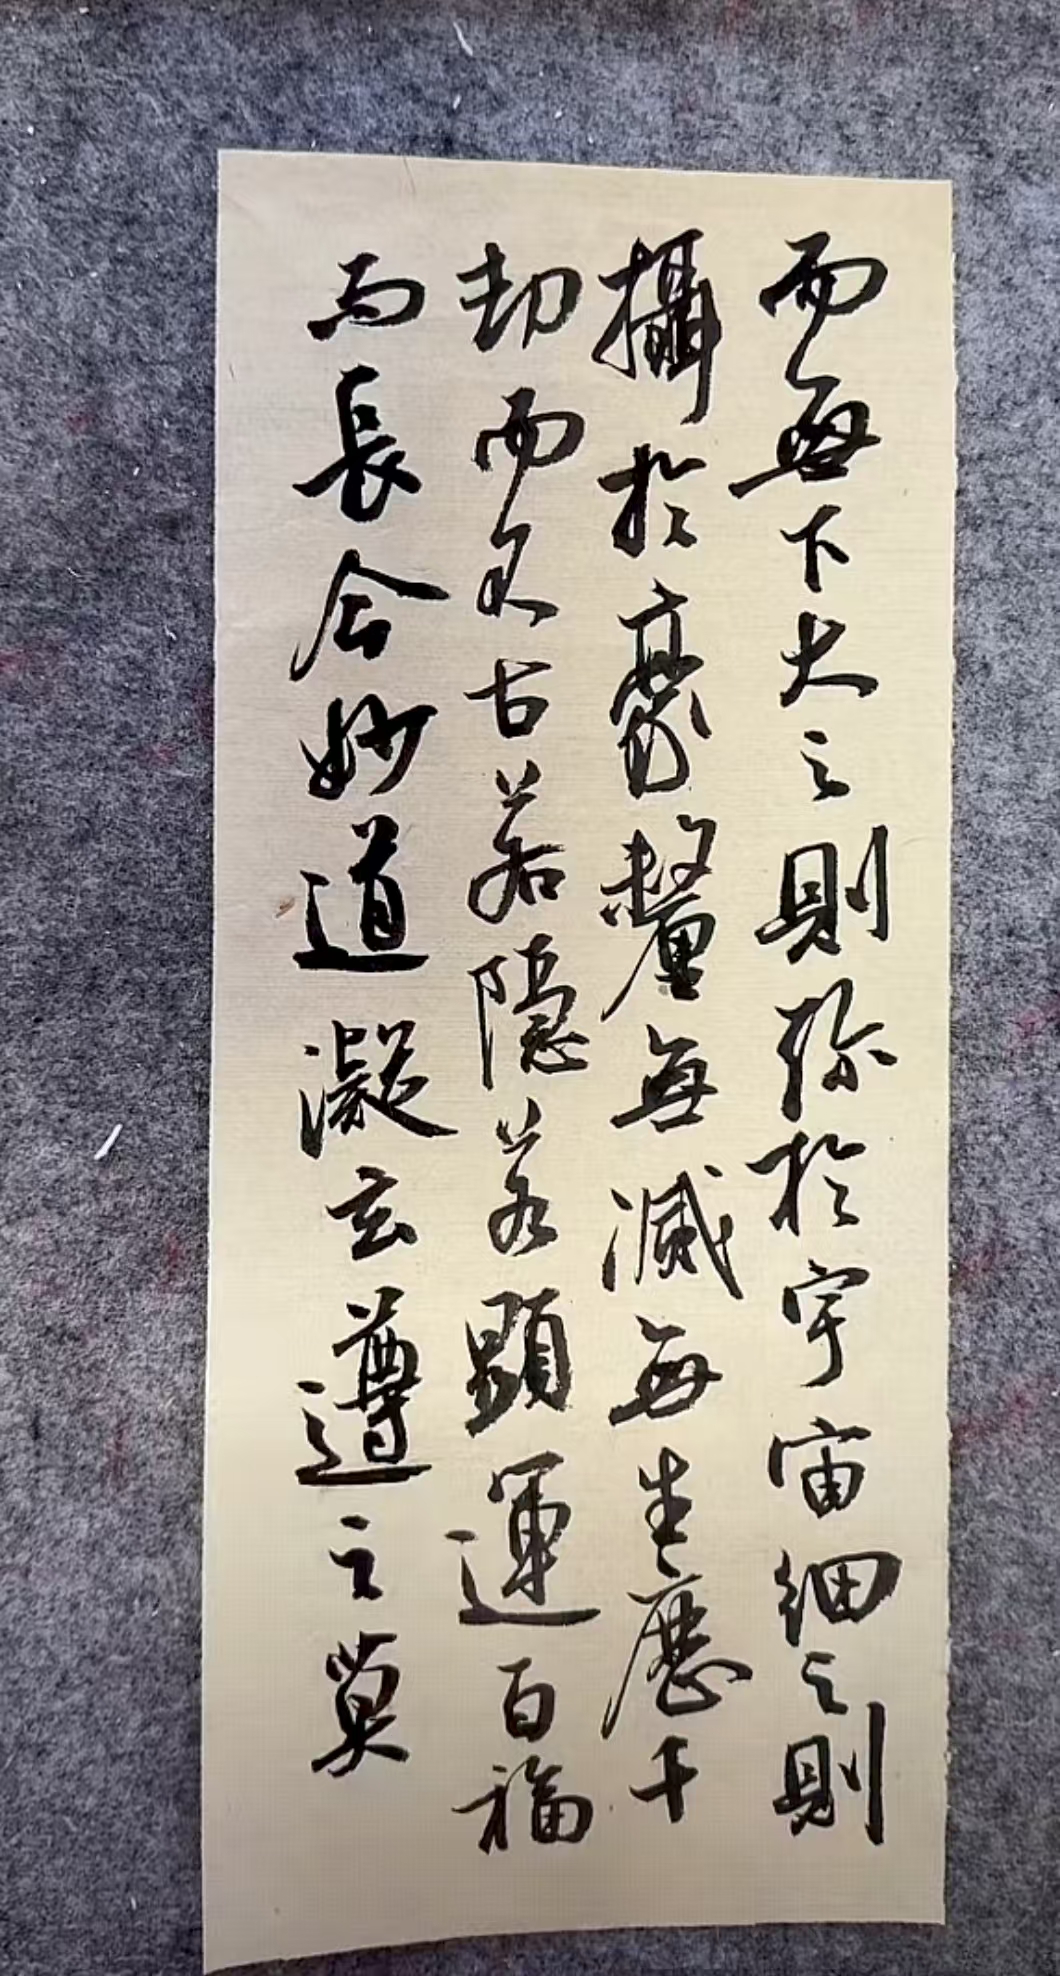 而無下大之則弥於宇宙細之則
攝於豪釐無滅無生歷千
劫而不古若隱若顯運百福
而長今妙道凝玄遵之莫